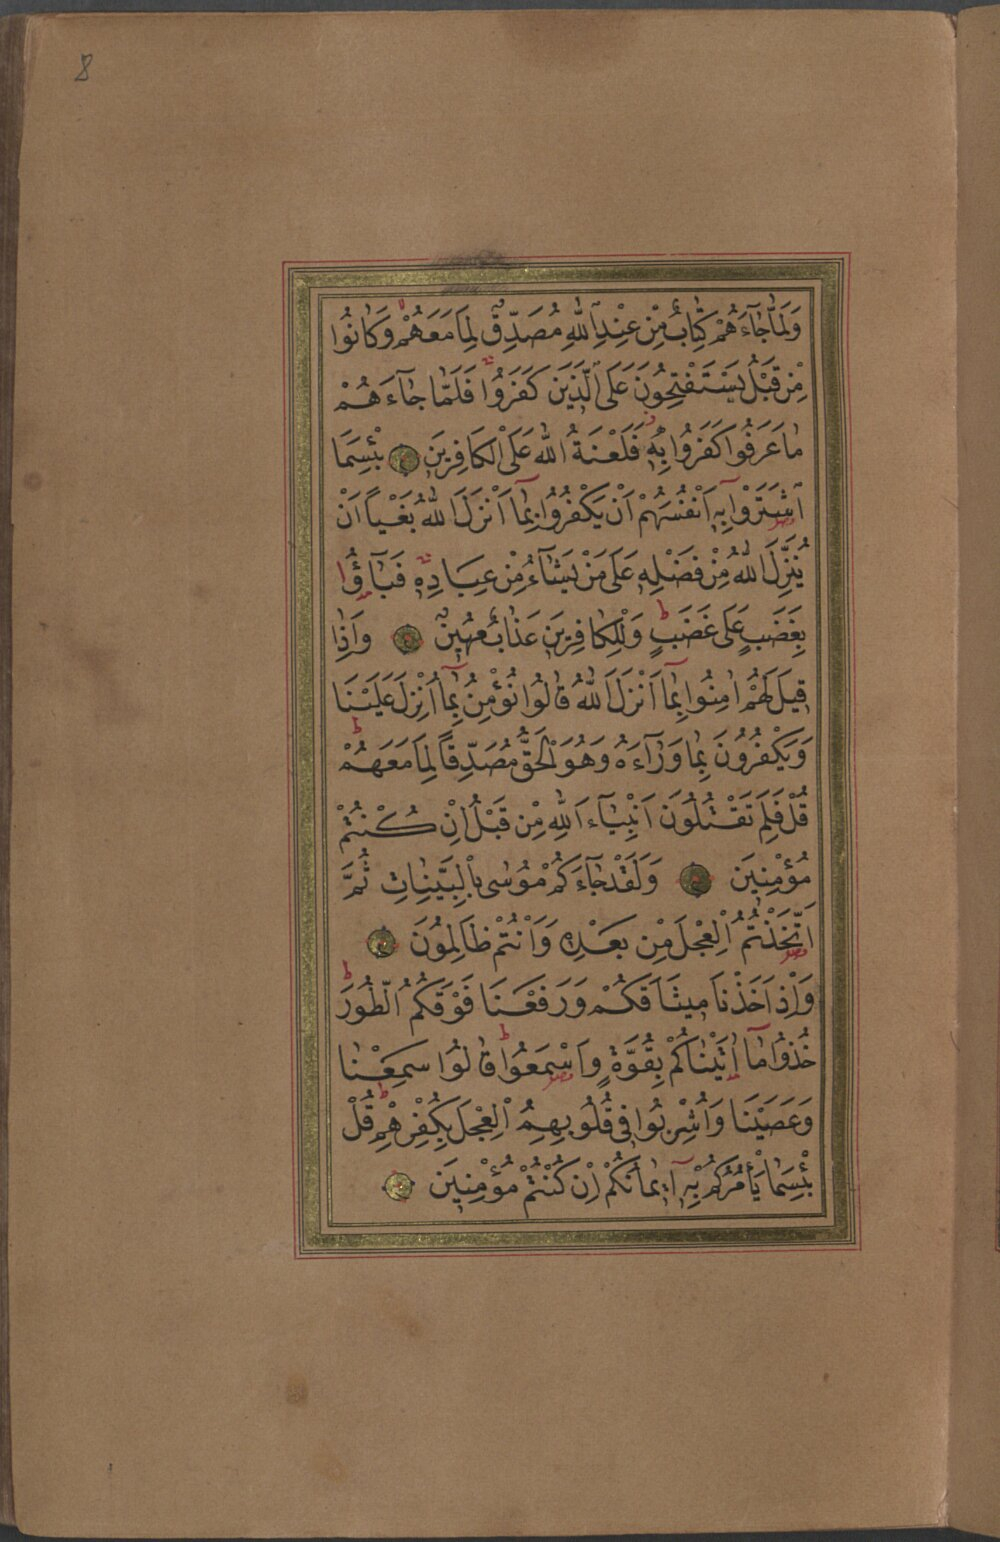 8
وَلَمَّا جَٓاءَهُمْ كِتَابٌ مِنْ عِنْدِ اللّٰهِ مُصَدِّقٌ لِمَا مَعَهُمْ وَكَانُوا
مِنْ قَبْلُ يَسْتَفْتِحُونَ عَلَى الَّذِينَ كَفَرُوا فَلَمَّا جَٓاءَهُمْ
مَا عَرَفُوا كَفَرُوا بِهِ فَلَعْنَةُ اللّٰهِ عَلَى الْكَافِرِينَ بِئْسَمَا
اشْتَرَوْا بِهٖ اَنْفُسَهُمْ اَنْ يَكْفُرُوا بِمَٓا اَنْزَلَ اللّٰهُ بَغْيًا اَنْ
يُنَزِّلَ اللّٰهُ مِنْ فَضْلِهٖ عَلٰى مَنْ يَشَٓاءُ مِنْ عِبَادِهٖ فَبَٓاؤُ
بِغَضَبٍ عَلٰى غَضَبٍ وَلِلْكَافِرِينَ عَذَابٌ مُهِينٌ وَاِذَا
قِيلَ لَهُمْ اٰمِنُوا بِمَٓا اَنْزَلَ اللّٰهُ قَالُوا نُؤْمِنُ بِمَٓا اُنْزِلَ عَلَيْنَا
وَيَكْفُرُونَ بِمَا وَرَٓاءَهُ وَهُوَ الْحَقُّ مُصَدِّقًا لِمَا مَعَهُمْ
قُلْ فَلِمَ تَقْتُلُونَ اَنْبِيَٓاءَ اللّٰهِ مِنْ قَبْلُ اِنْ كُنْتُمْ
مُؤْمِنِينَ وَلَقَدْ جَٓاءَكُمْ مُوسٰى بِالْبَيِّنَاتِ ثُمَّ
اتَّخَذْتُمُ الْعِجْلَ مِنْ بَعْدِهٖ وَاَنْتُمْ ظَالِمُونَ
وَاِذْ اَخَذْنَا مِيثَاقَكُمْ وَرَفَعْنَا فَوْقَكُمُ الطُّورَ
خُذُوا مَٓا اٰتَيْنَاكُمْ بِقُوَّةٍ وَاسْمَعُوا قَالُوا سَمِعْنَا
وَعَصَيْنَا وَاُشْرِبُوا فِى قُلُوبِهِمُ الْعِجْلَ بِكُفْرِهِمْ قُلْ
بِئْسَمَا يَأْمُرُكُمْ بِهٖٓ اِيمَانُكُمْ اِنْ كُنْتُمْ مُؤْمِنِينَ